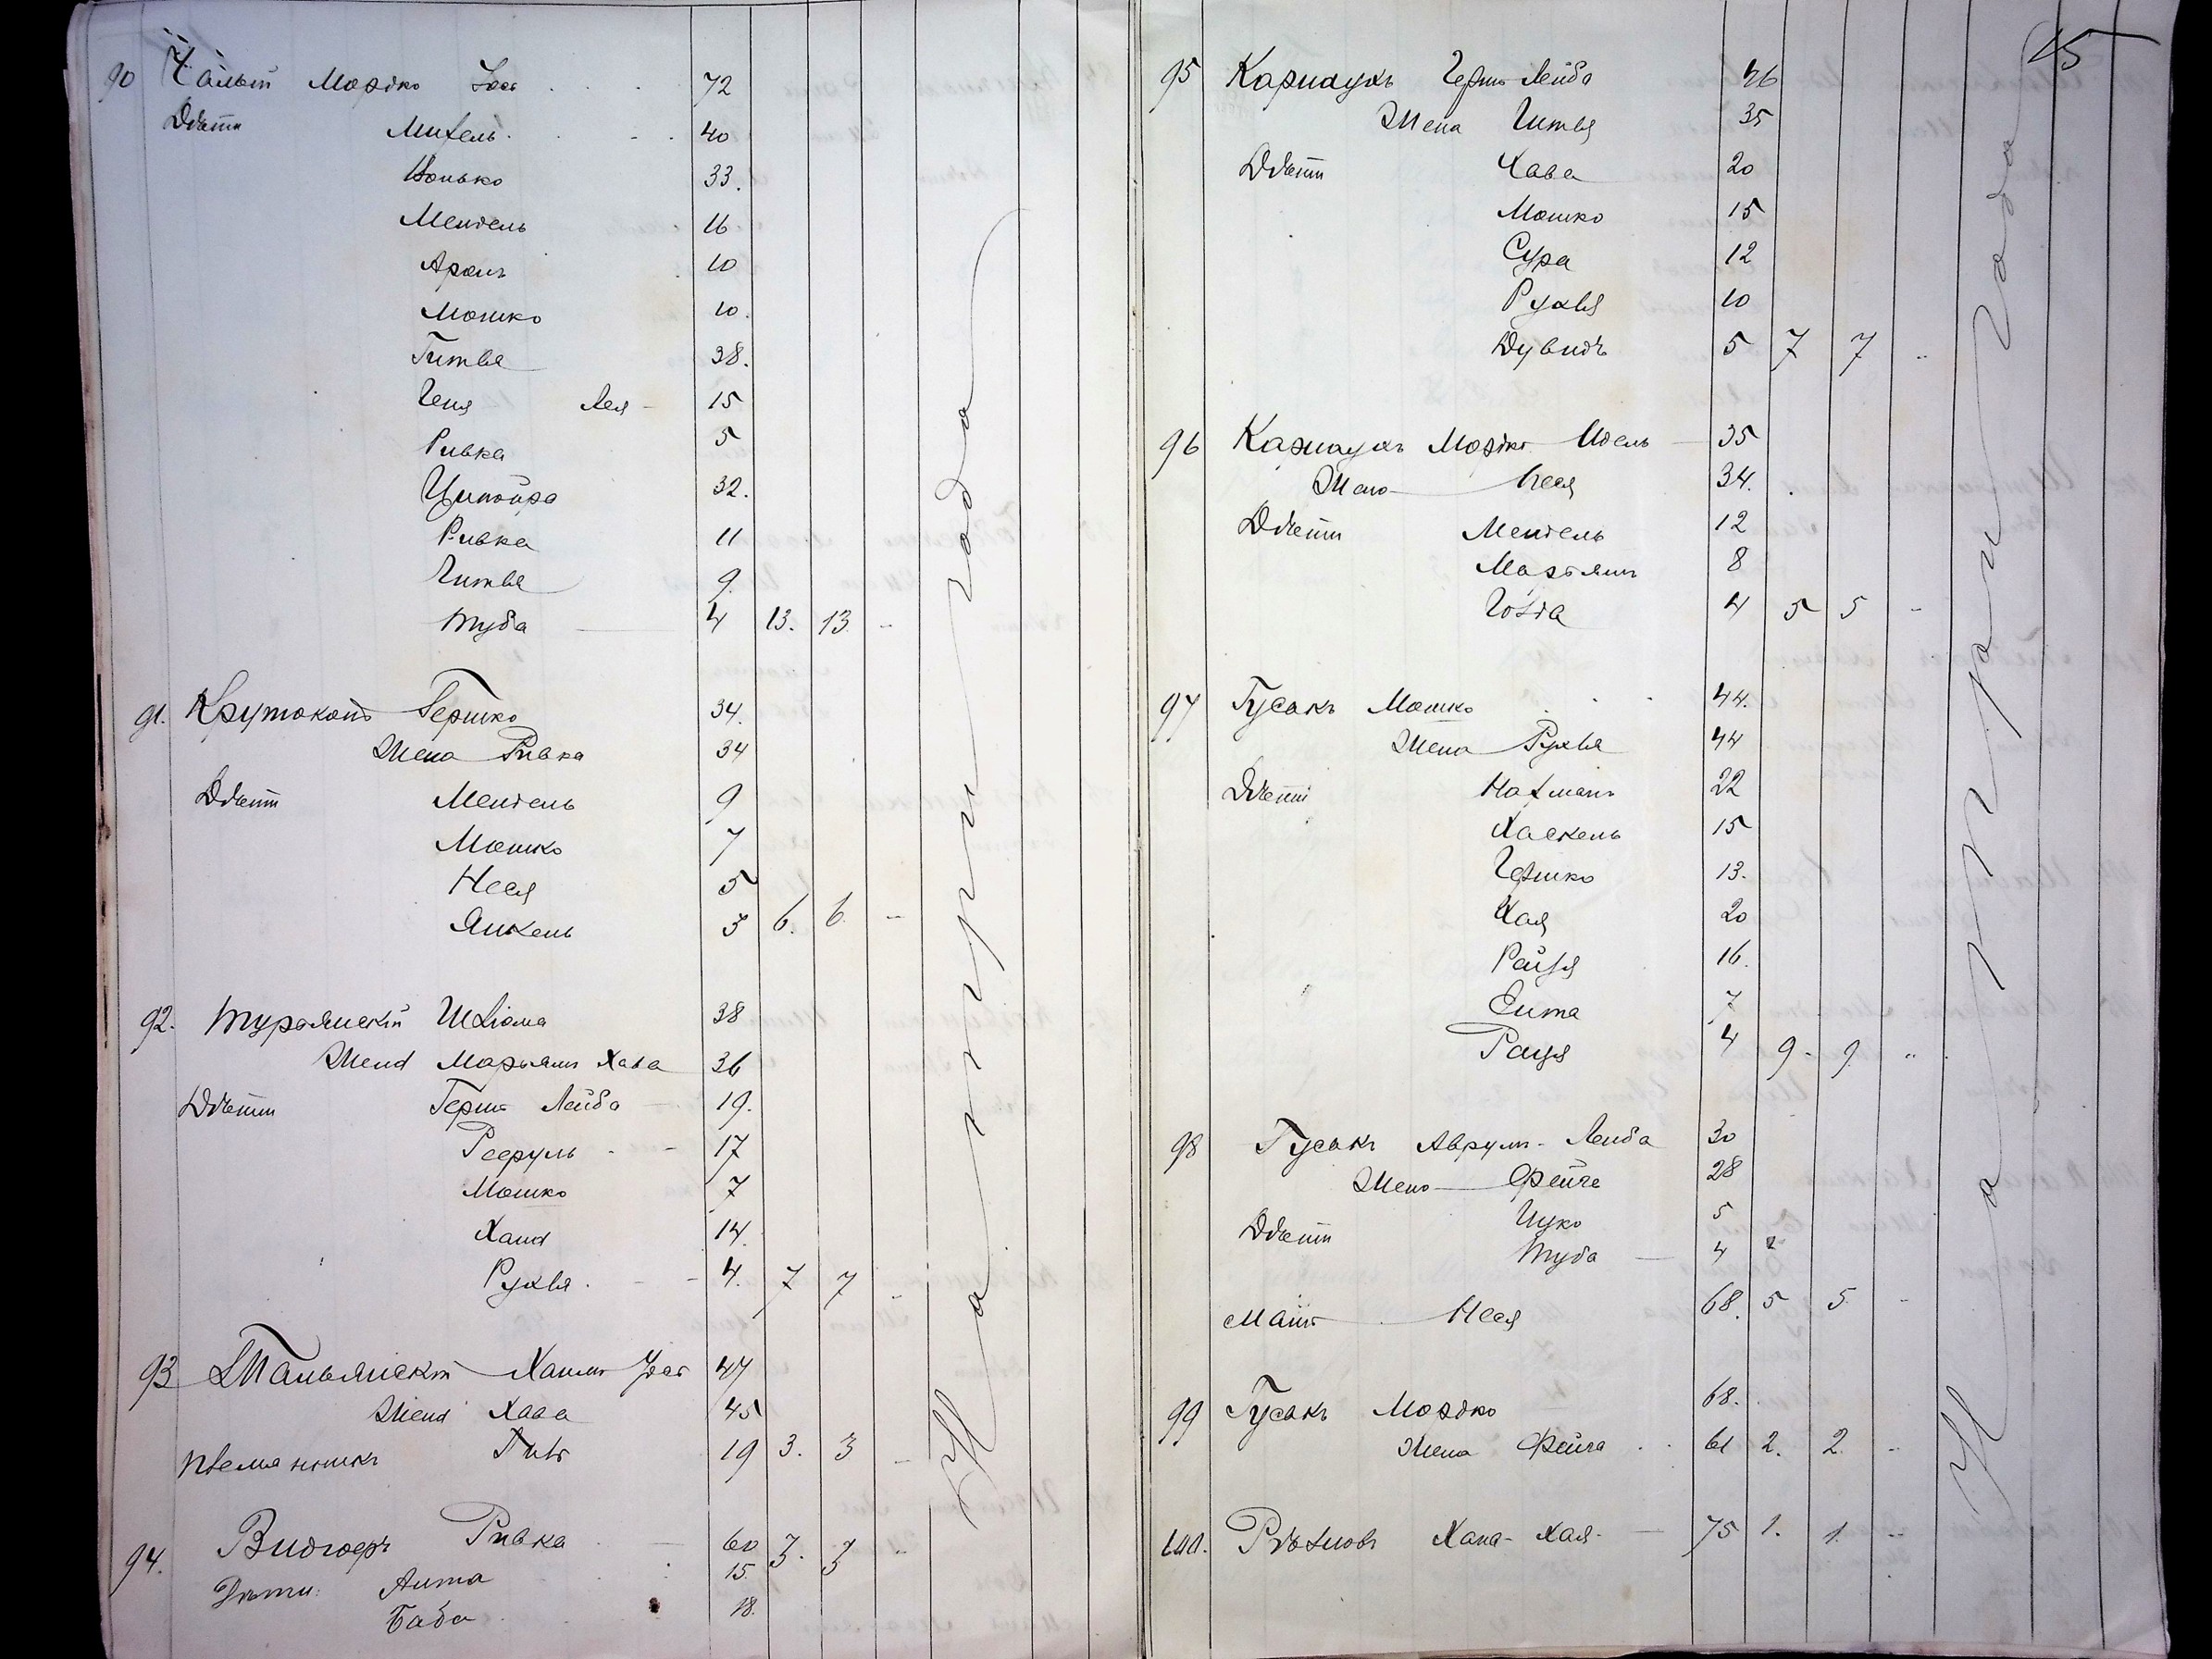 90 Чалый Мордко Іосъ 72
Дѣти Михель 40
Іонько 33.
Мендель 16
Аронъ 10
Мошко 10.
Гитля 38.
Геня Лея 15
Ривка 5
Ципойра 32.
Ривка 11
Гитля 9.
Туба 4 13. 13 "
91. Крутоконь Гершко 34.
Жена Ривка 34
Дѣти Мендель 9
Мошко 7
Неся 5
Янкель 3 6. 6. "
92. Турянскій Шлёма 38
Жена Марьямъ Хава 36
Дѣти Гершъ Лейба 19.
17
Мошко 7
Хана 14.
Рухля 4. 7 7 "
93 Тальянскій Хаимъ 47
Жена Хава 45
племянникъ 19 3. 3 "
94. Видгоеръ Ривка 60 3. 3 "
Дѣти: Анта 15
Баба 18.
На четыри года
45
95 Карнаухъ Гершъ Лейба 46
Жена Гитля 35
Дѣти Хава 20
Мошко 15
Сура 12
Рухля 10
Дувидъ 5 7 7 "
96 Карнаухъ Мордко Идель 35
Жена Неся 34.
Дѣти Мендель 12
Марьямъ 8
Голда 4 5 5 "
97 Гусакъ Мошко 44.
Жена Рухля 44
Дѣти Нахманъ 22
Хаскель 15
Гершко 13.
Хая 20
Райзя 16.
Ента 7
4 9. 9. "
98 Гусакъ Аврумъ-Лейба 30
Жена Фейге 28
Дѣти Ицко 5
Туба 4
Мать Неся 68. 5 5 "
99 Гусакъ Мордко 68.
Жена Фейга 61 2. 2. "
100. Хана-Хая 75 1. 1. "
На четыри года